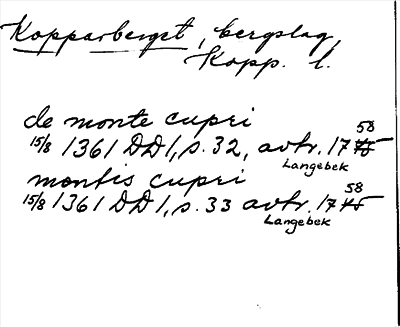 Kopparberget, bergslag,
Kopp. l.
de monte cupri
15/8 1361 DD 1, s. 32, avtr. 1745 58
Langebek
montis cupri
15/8 1361 DD 1, s. 33 avtr. 1745 58
Langebek